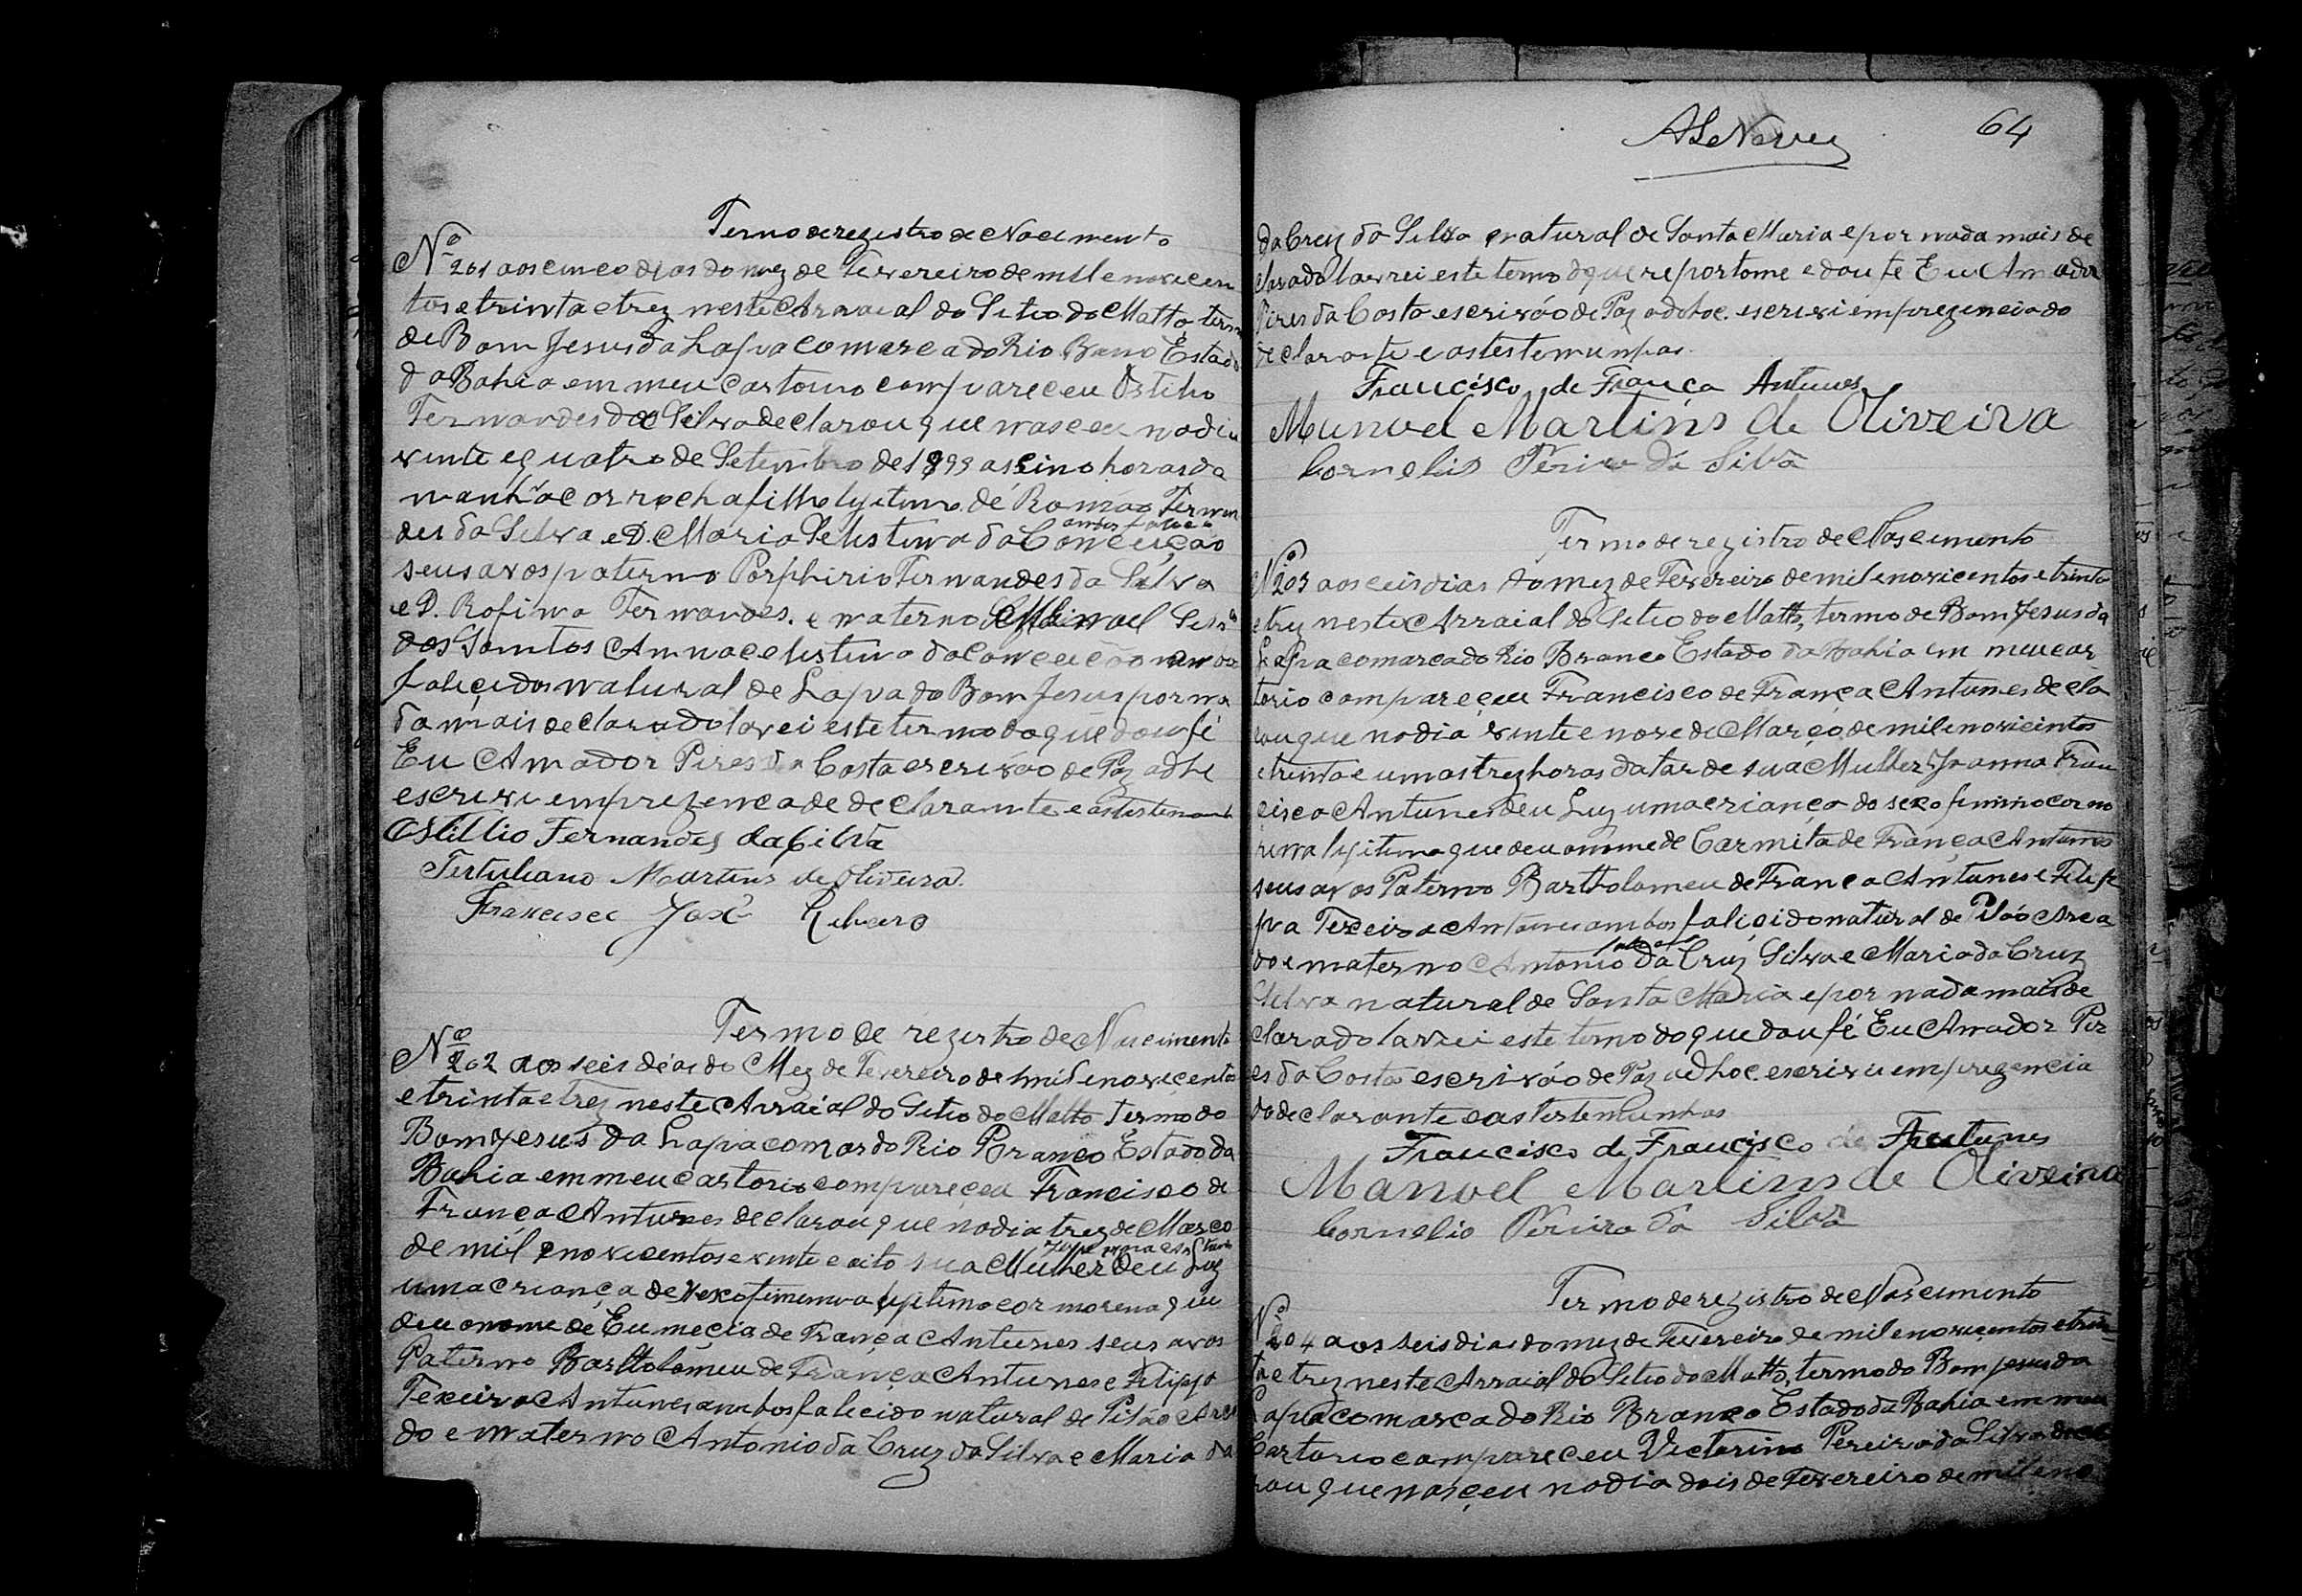 Termo de registro de Nacimento
Nº 201 aos cinco dias do mez de Fevereiro de mil e novicen
tos e trinta e trez neste Arraial do Sitio do Matto termo
de Bom Jesus da Lapa comarca do Rio Branco Estado
da Bahia em meu cartorio compareceu Ostilio
Fernandes da Silva declarou que nasceu no dia
vinte e quatro de Setembro de 1899 as cino horas da
manhã cor rocha filho legitimo de Romão Fernan
ambos falicido
des da Silva e D. Maria Selistina da Conceição
seus avos paterno Porphirio Fernandes da Silva
e D. Rofina Fernandes. e materno Manoel
dos Santos Anna Celistina da Conceição
falicidos natural de Lapa do Bom Jesus por na
da mais declarado lavei este termo do que dou fé
Eu Amador Pires da Costa escrivão de Paz adhc
escrivi em prezenca de declarante e as testemunh
Ostillio Fernandes da Silva
Tertuliano Martins de Oliveira
Francisco José Ribeiro
Termo de rezistro de Nascimento
Nº 202 aos seis dias do Mez de Fevereiro de mil e novicentos
e trinta e trez neste Arraial do Sitio do Matto Termo do
Bom Jesus da Lapa comar do Rio Branco Estado da
Bahia em meu cartorio compareceu Francisco de
Franca Antunes declarou que no dia trez de Março
de mil e novicentos e vinte e oito sua Mulher deu Luz
uma criança de sexo feminina legitimo cor morena que
deu o nome de Eumecia de França Antunes seus avos
Paterno Bartholomeu de França Antunes e Filippa
Texeira Antunes ambos falicido natural de Pilão Arca
do e materno Antonio da Cruz da Silva e Maria da
ALeNeves 64
da Cruz da Silva natural de Santa Maria e por nada mais de
clarado lavrei este termo do que reportome e dou fé Eu Amador
Pires da Costa escrivão de Paz adohoc. escrivi em prezencia do
declarante e as testemunhas.
Francisco de França Antunes
Manuel Martins de Oliveira
Cornelio Périra da Silva
Termo de rezistro de Nascimento
Nº 203 aos seis dias do mez de Fevereiro de mil e novicentos e trinta
e trez neste Arraial do Sitio do Matto, termo de Bom Jesus da
Lapa comarca do Rio Branco Estado da Bahia em meu car
torio compareceu Francisco de França Antunes decla
rou que no dia vinte e nove de Março de mil e novicintos
e trinta e um as trez horas da tar de sua Mulher Joanna Fran
cisca Antunes deu Luz uma criança do sexo feminino cor mo
rena legitima que deu o nome de Carmita de França Antunes
seus avos Paterno Bartholomeu de França Antunes e Filip
pa Texeira Antunes ambos falicido natural de Pilão Arca
do e materno Antonio da Cruz Silva e Maria da Cruz
Silva natural de Santa Maria e por nada mais de
clarado lavrei este termo do que dou fé Eu Amador Pir
es da Costa escrivão de Paz adhoc. escrivi em prezencia
do declarante e as testemunhas
Francisco de Francisco de Antunes
Manuel Martins de Oliveira
Cornelio Péreira da Silva
Termo de rezistro de Nascimento
Nº 204 aos seis dias do mez de Fevereiro de mil e novicentos e trin
ta e trez neste Arraial do Sitio do Matto, termo do Bom Jesus da
Lapa comarca do Rio Branco Estado da Bahia em meu
Cartorio compareceu Victorino Pereira da Silva decla
rou que nasceu no dia dois de Fevereiro de mil e no